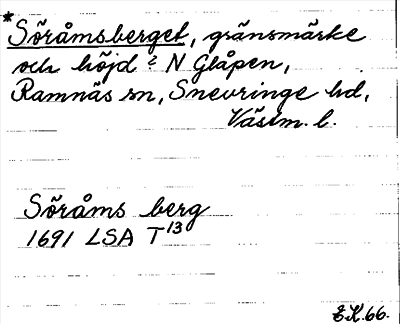 *Söråmsberget, gränsmärke
och höjd ? N Glåpen,
Ramnäs sn, Snevringe hd,
Västm. l.
Söråms berg
1691 LSA T13
E.K. 66.